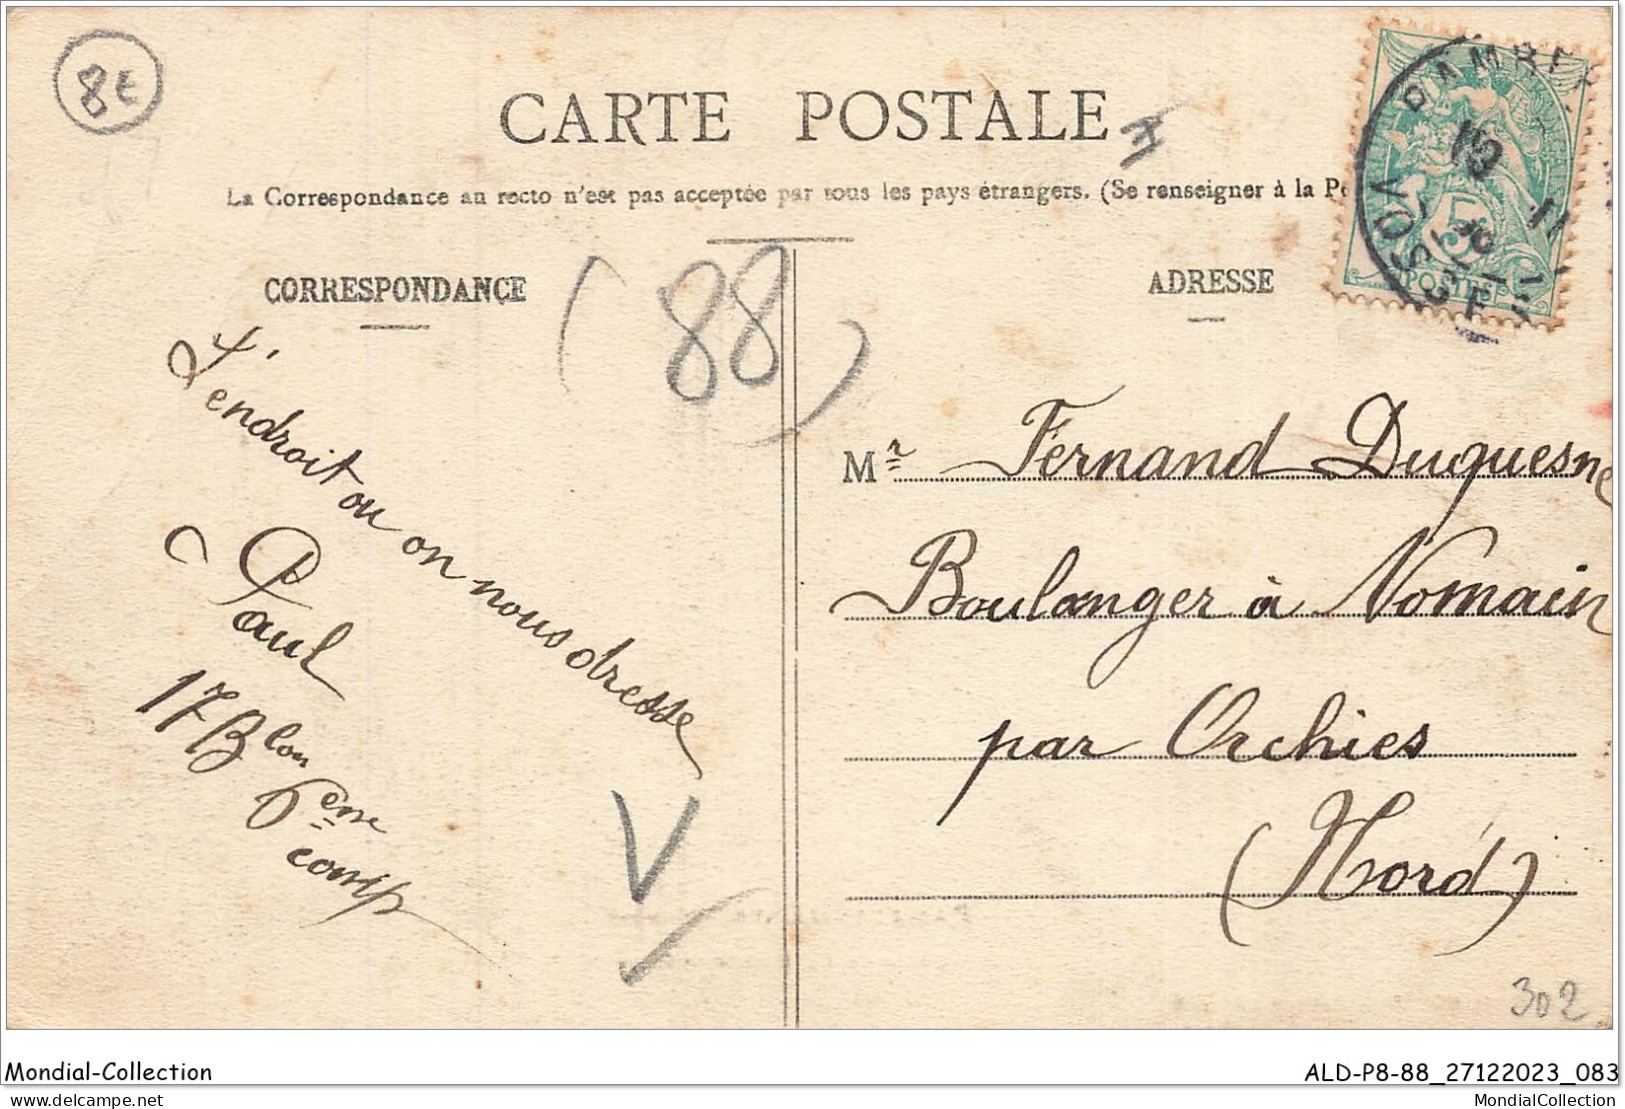 8€
CARTE POSTALE
La Correspondance au recto n'est pas acceptée par tous les pays étrangers. (Se renseigner à la
CORRESPONDANCE
(88)
ADRESSE
5
POSTES
RAMBER
VOSGES
L'endroit ou on nous dresse
Paul
17 Blon
6eme
comp
Mr Fernand Duquesne
Boulanger à Nomain
par Orchies
(Nord)
302
Mondial-Collection
ALD-P8-88_27122023_083
delcampe.net
MondialCollection